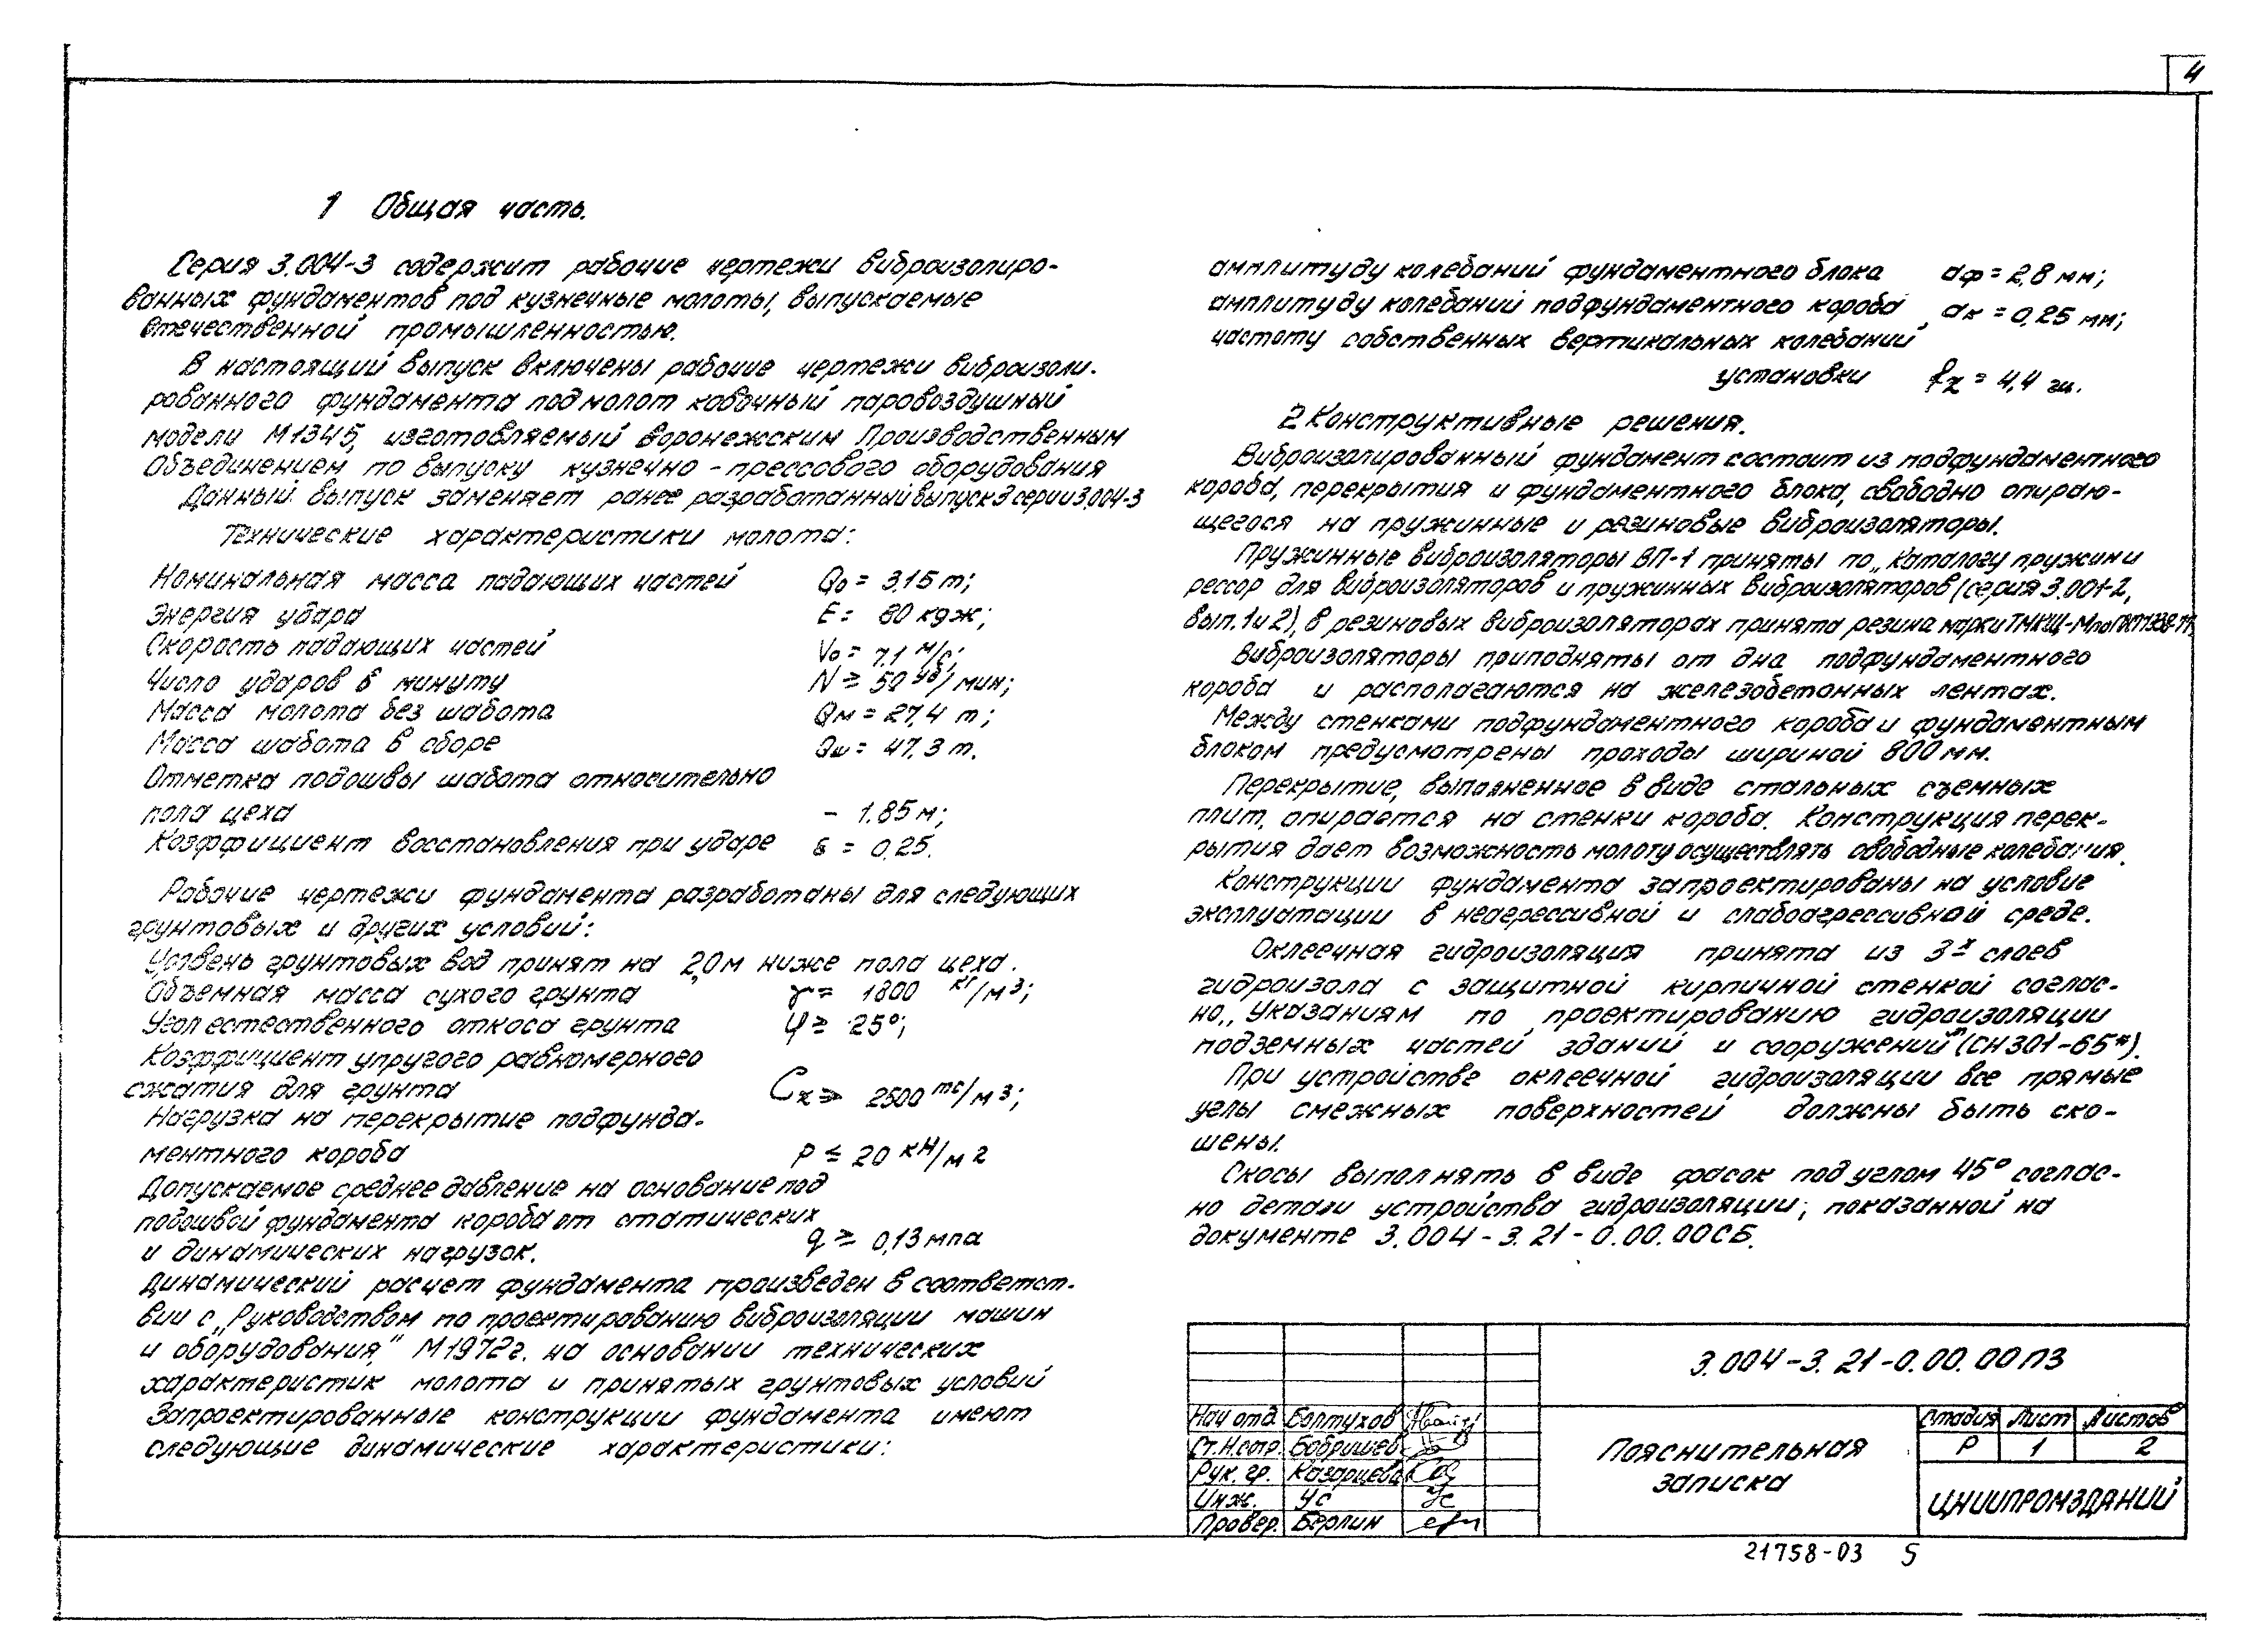 4
1 Общая часть.
Серия 3.004-3 содержит рабочие чертежи виброизолиро-
ванных фундаментов под кузнечные молоты, выпускаемые
отечественной промышленностью.
В настоящий выпуск включены рабочие чертежи виброизоли-
рованного фундамента под молот ковочный паровоздушный
модели М1345, изготовляемый Воронежским Производственным
Объединением по выпуску кузнечно-прессового оборудования
Данный выпуск заменяет ранее разработанный выпуск 3 серии 3.004-3
Технические характеристики молота:
Номинальная масса падающих частей Q₀ = 3.15 т;
Энергия удара E = 80 кдж;
Скорость падающих частей V₀ = 7,1 м/с;
Число ударов в минуту N ≥ 50 уд/мин;
Масса молота без шабота Qм = 27,4 т;
Масса шабота в сборе Qш = 47.3 т.
Отметка подошвы шабота относительно
пола цеха - 1.85 м;
Коэффициент восстановления при ударе ε = 0.25.
Рабочие чертежи фундамента разработаны для следующих
грунтовых и других условий:
Уровень грунтовых вод принят на 2,0 м ниже пола цеха.
Объемная масса сухого грунта γ = 1800 кг/м3;
Угол естественного откоса грунта φ ≥ 25°;
Коэффициент упругого равномерного
сжатия для грунта Cz ≥ 2500 тс/м3;
Нагрузка на перекрытие подфунда-
ментного короба P ≤ 20 кН/м2
Допускаемое среднее давление на основание под
подошвой фундамента короба от статических
и динамических нагрузок. q ≥ 0,13 мпа
Динамический расчет фундамента произведен в соответст-
вии с „Руководством по проектированию виброизоляции машин
и оборудования," М 1972г. на основании технических
характеристик молота и принятых грунтовых условий
Запроектированные конструкции фундамента имеют
следующие динамические характеристики:
амплитуду колебаний фундаментного блока aф = 2,8 мм;
амплитуду колебаний подфундаментного короба aк = 0,25 мм;
частоту собственных вертикальных колебаний
установки fz = 4,4 гц.
2 Конструктивные решения.
Виброизолированный фундамент состоит из подфундаментного
короба, перекрытия и фундаментного блока, свободно опираю-
щегося на пружинные и резиновые виброизоляторы.
Пружинные виброизоляторы ВП-1 приняты по „Каталогу пружин и
рессор для виброизоляторов и пружинных виброизоляторов (серия 3.001-2,
вып. 1 и 2), в резиновых виброизоляторах принята резина марки ТМКЩ-М по
Виброизоляторы приподняты от дна подфундаментного
короба и располагаются на железобетонных лентах.
Между стенками подфундаментного короба и фундаментным
блоком предусмотрены проходы шириной 800 мм.
Перекрытие, выполненное в виде стальных съемных
плит, опирается на стенки короба. Конструкция перек-
рытия дает возможность молоту осуществлять свободные колебания.
Конструкции фундамента запроектированы на условие
эксплуатации в неагрессивной и слабоагрессивной среде.
Оклеечная гидроизоляция принята из 3х слоев
гидроизола с защитной кирпичной стенкой соглас-
но „Указаниям по проектированию гидроизоляции
подземных частей зданий и сооружений" (СН 301-65*).
При устройстве оклеечной гидроизоляции все прямые
углы смежных поверхностей должны быть ско-
шены.
Скосы выполнять в виде фасок под углом 45° соглас-
но детали устройства гидроизоляции, показанной на
документе 3.004-3.21-0.00.00СБ.
3.004-3.21-0.00.00ПЗ
Нач отд Бортухов
Ст.Н.сотр. Бобришев
Рук. гр. Казарцева
Инж. Ус
Провер. Берлин
Пояснительная
записка
Стадия Лист Листов
Р 1 2
ЦНИИПРОМЗДАНИЙ
21758-03 5